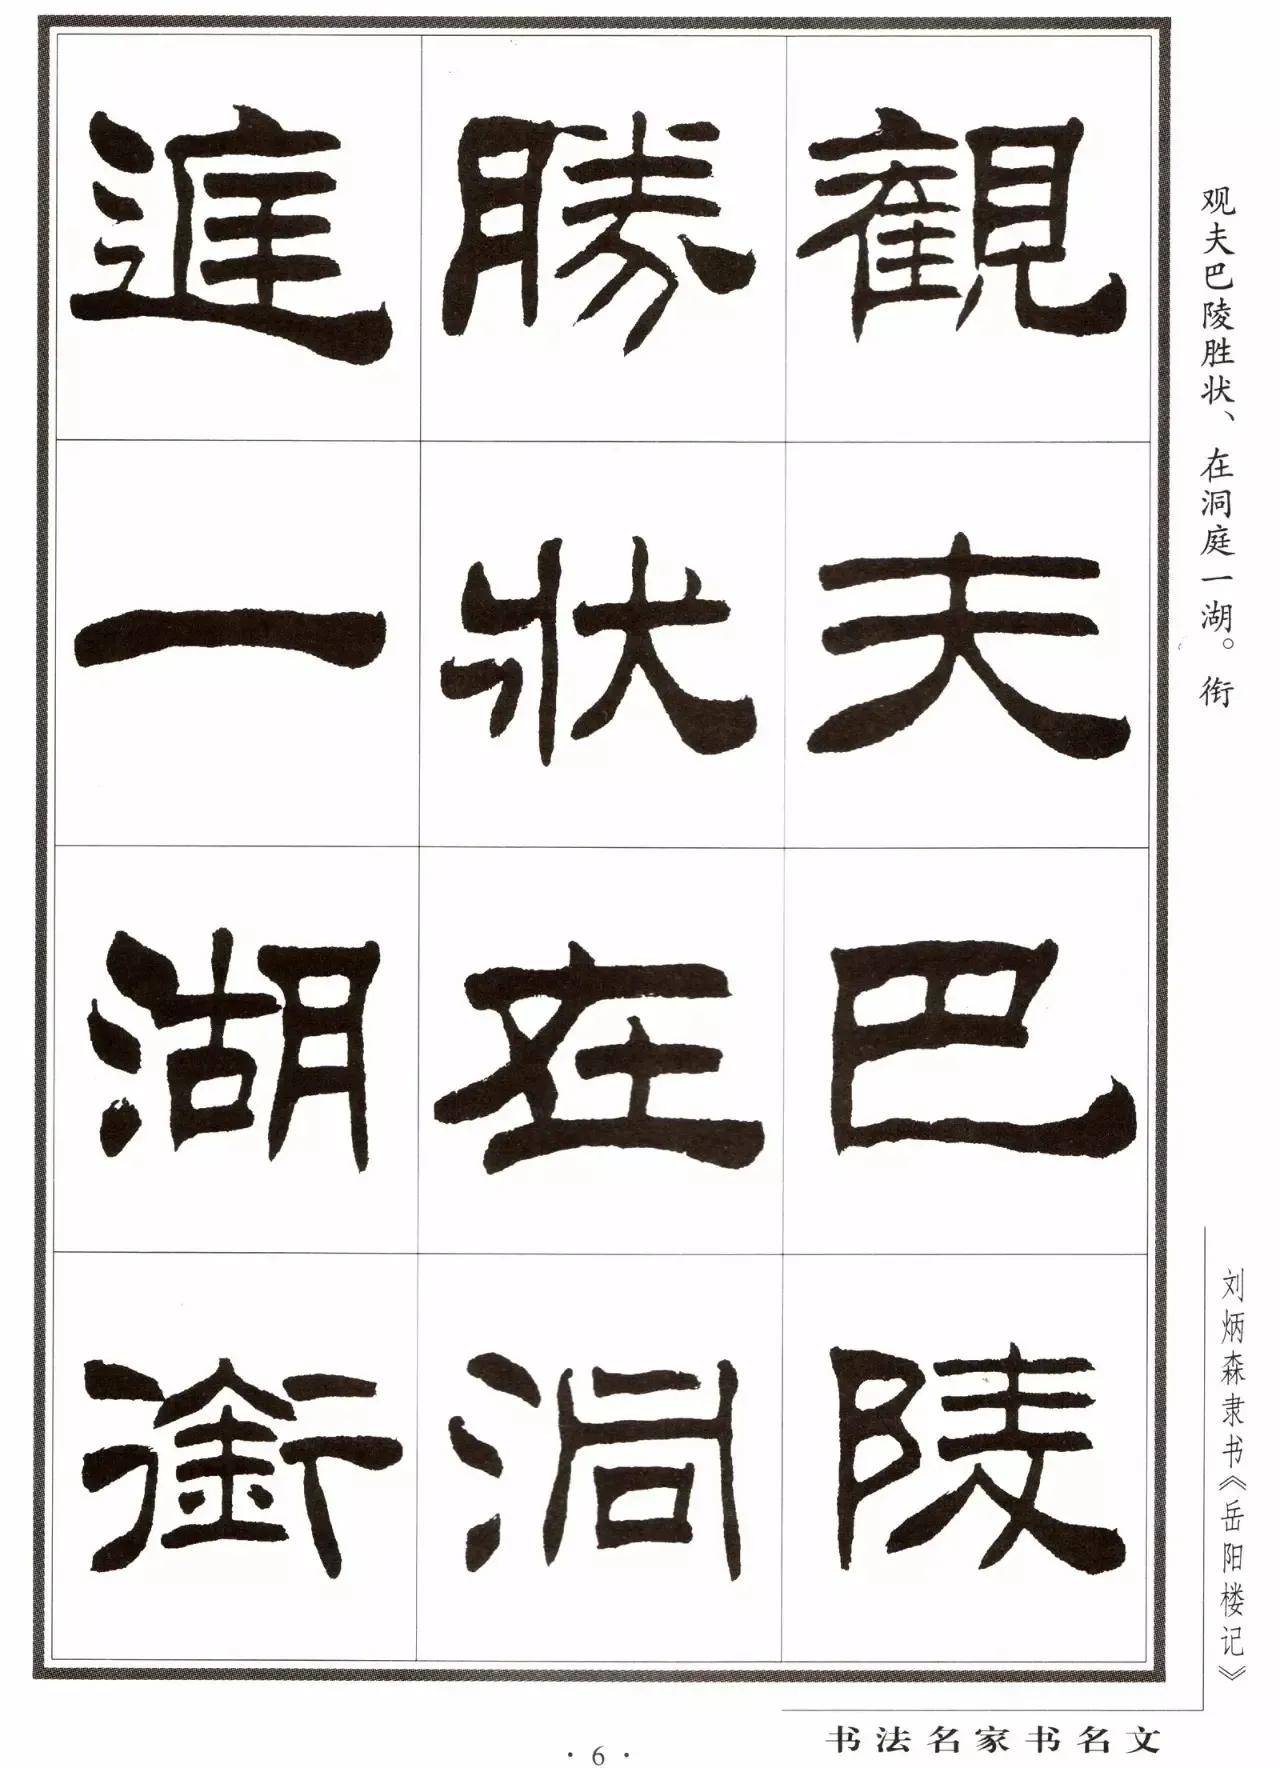 观夫巴陵胜状、在洞庭一湖。衔
刘炳森隶书《岳阳楼记》
觀夫巴陵
勝狀在洞
庭一湖銜
书法名家书名文
·6·